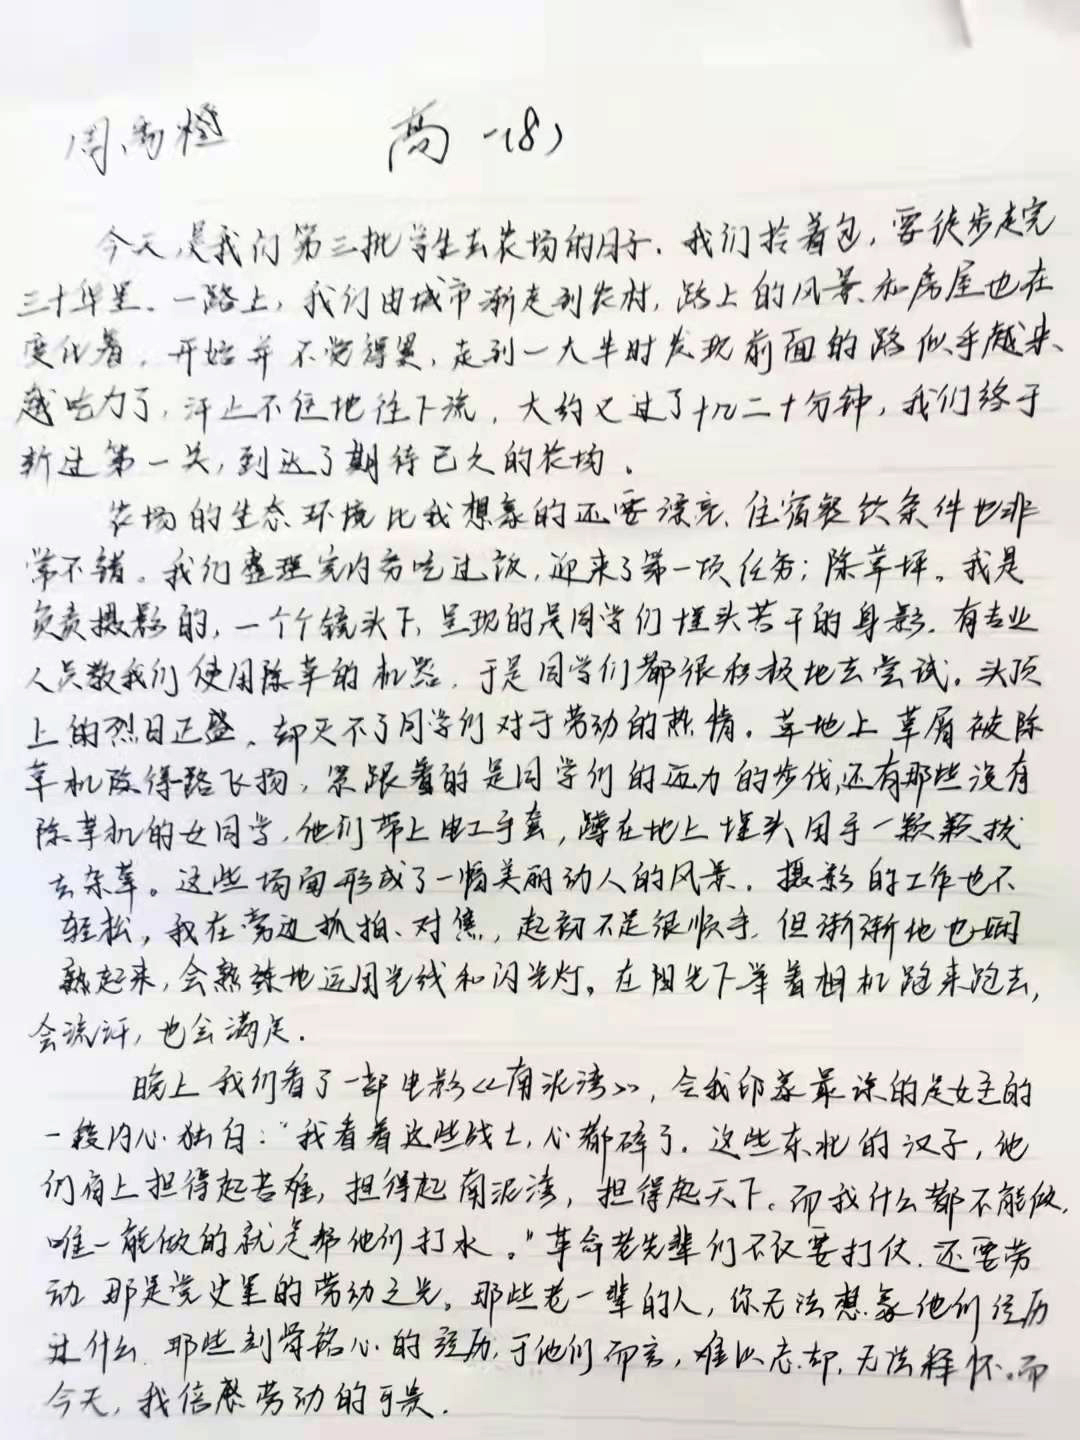 周雨橙 高一(8)
今天,是我们第三批学生去农场的日子.我们拎着包,要徒步走完
三十华里.一路上,我们由城市渐走到农村,路上的风景和房屋也在
变化着.开始并不觉得累,走到一大半时发现前面的路似乎越来
越吃力了,汗止不住地往下流.大约又过了十几二十分钟,我们终于
过第一关,到达了期待已久的农场.
农场的生态环境比我想象的还要漂亮.住宿餐饮条件也非
常不错.我们整理完内务吃过饭,迎来了第一项任务:除草坪.我是
负责摄影的,一个个镜头下,呈现的是同学们埋头苦干的身影.有专业
人员教我们使用除草的机器.于是同学们都很积极地去尝试.头顶
上的烈日正盛.却灭不了同学们对于劳动的热情.草地上草屑被除
草机除得一路飞扬,紧跟着的是同学们的迈力的步伐,还有那些没有
除草机的女同学.他们带上电工手套,蹲在地上埋头用手一颗颗拔
去杂草.这些场面形成了一幅美丽动人的风景.摄影的工作也不
轻松,我在旁边抓拍、对焦,起初不是很顺手.但渐渐地也娴
熟起来,会熟练地运用光线和闪光灯.在阳光下举着相机跑来跑去,
会流汗,也会满足.
晚上我们看了一部电影《南泥湾》,令我印象最深的是女主的
一段内心独白:"我看着这些战士,心都碎了.这些东北的汉子,他
们肩上担得起苦难,担得起南泥湾,担得起天下.而我什么都不能做.
唯一能做的就是帮他们打水."革命老先辈们不仅要打仗.还要劳
动.那是党史里的劳动之光.那些老一辈的人,你无法想象他们经历
过什么.那些刻骨铭心的经历,于他们而言,难以忘却,无法释怀.而
今天,我倍感劳动的可贵.